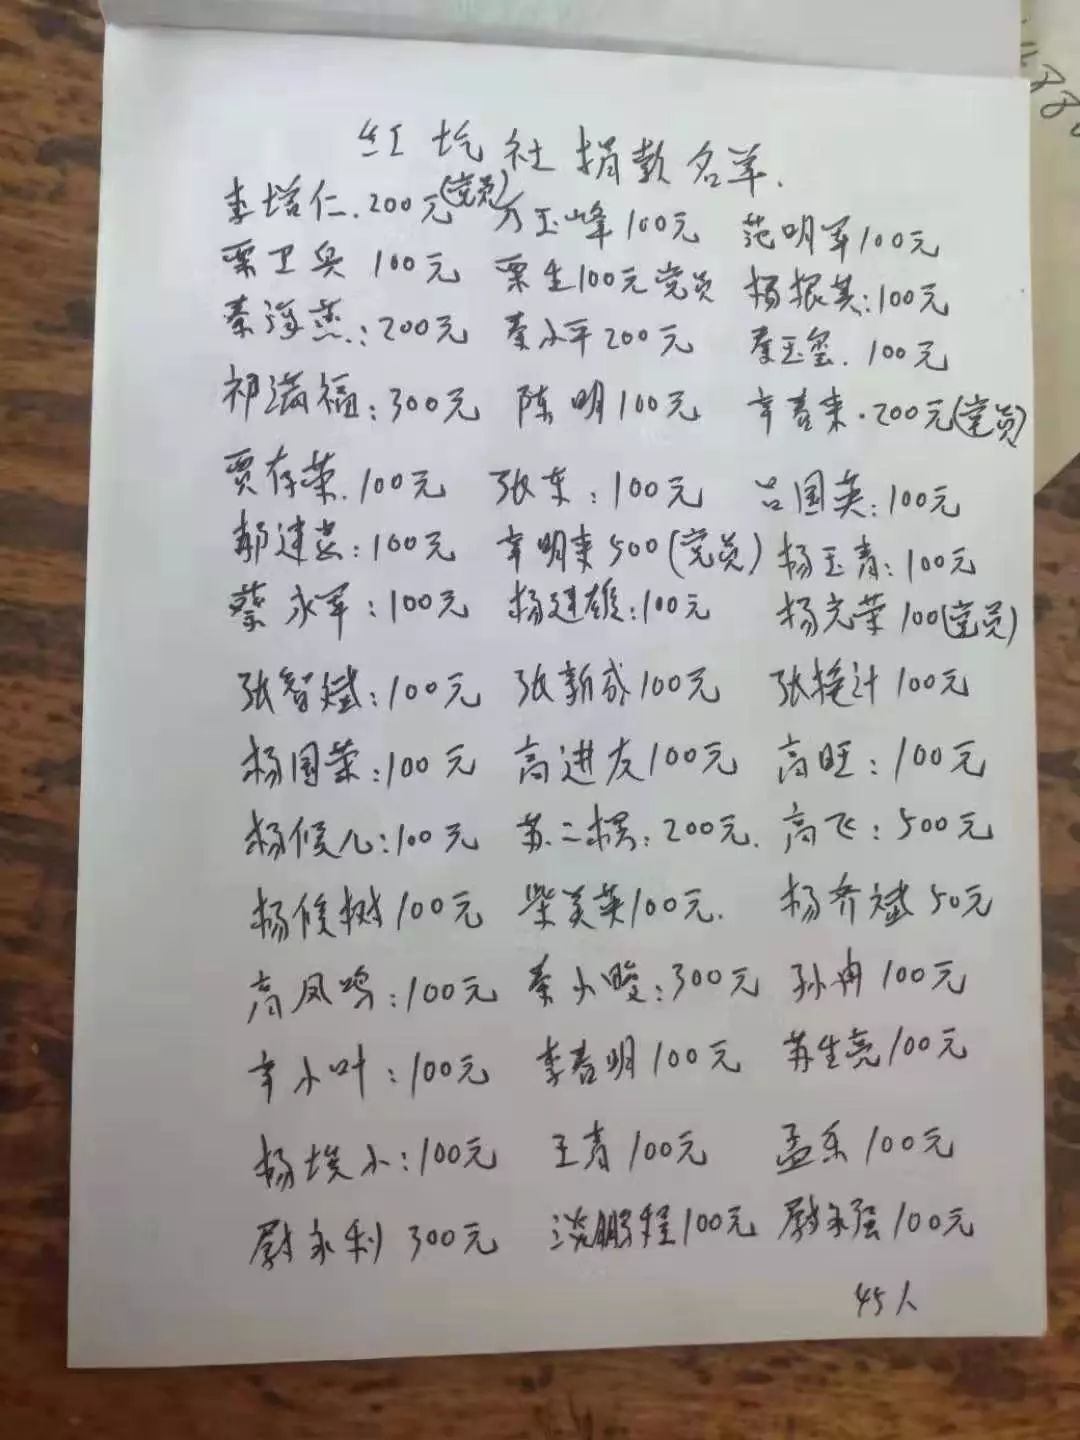 红圪社捐款名单.
李培仁.200元(党员) 万玉峰100元 范明军100元
栗卫兵 100元 栗生100元党员 杨振英:100元
秦海燕:200元 秦小平200元 秦玉玺.100元
祁满福:300元 陈明100元 辛春来.200元(党员)
贾存荣.100元 张东:100元 吕国英:100元
郝建忠:100元 辛明来500(党员) 杨玉青:100元
蔡永军:100元 杨建雄:100元 杨光荣100(党员)
张智斌:100元 张新成100元 张挨计100元
杨国荣:100元 高进友100元 高旺:100元
杨候儿:100元 苏二楞:200元. 高飞:500元
杨候树100元 柴美英100元. 杨乔斌50元
高凤鸣:100元 秦小畯:300元 孙冉100元
辛小叶:100元 李春明100元 苏生亮100元
杨埃小:100元 王青100元 孟乐100元
尉永利 300元 淡鹏程100元 尉永强100元
45人